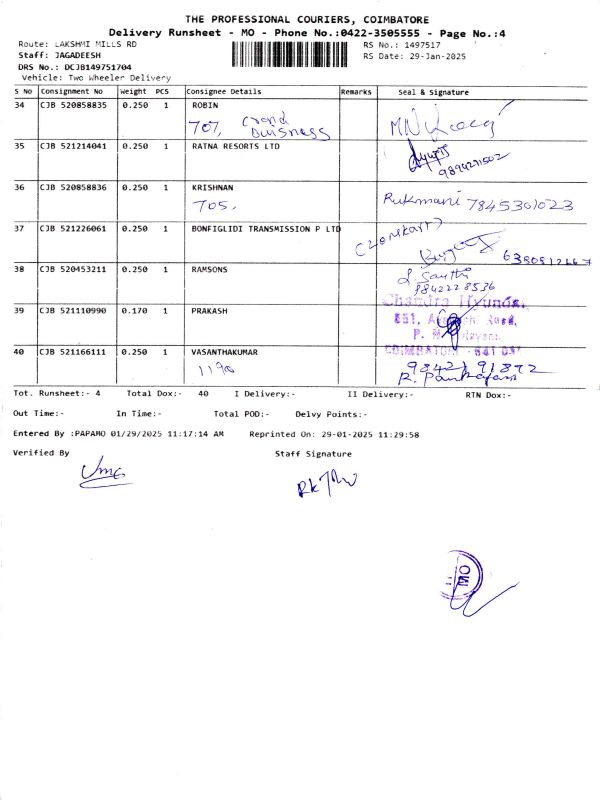 THE PROFESSIONAL COURIERS, COIMBATORE
Delivery Runsheet - MO - Phone No.:0422-3505555 - Page No.:4
Route: LAKSHMI MILLS RD RS No.: 1497517
Staff: JAGADEESH RS Date: 29-Jan-2025
DRS No.: DCJB149751704
Vehicle: Two Wheeler Delivery
S No Consignment No Weight PCS Consignee Details Remarks Seal & Signature
34 CJB 520858835 0.250 1 ROBIN
707,
35 CJB 521214041 0.250 1 RATNA RESORTS LTD
36 CJB 520858836 0.250 1 KRISHNAN
705. Rukmani 7845301023
37 CJB 521226061 0.250 1 BONFIGLIDI TRANSMISSION P LTD
38 CJB 520453211 0.250 1 RAMSONS
9842228536
39 CJB 521110990 0.170 1 PRAKASH
Chandra Hyundai
40 CJB 521166111 0.250 1 VASANTHAKUMAR
1190
Tot. Runsheet:- 4 Total Dox:- 40 I Delivery:- II Delivery:- RTN Dox:-
Out Time:- In Time:- Total POD:- Delvy Points:-
Entered By :PAPAMO 01/29/2025 11:17:14 AM Reprinted On: 29-01-2025 11:29:58
Verified By Staff Signature
MO